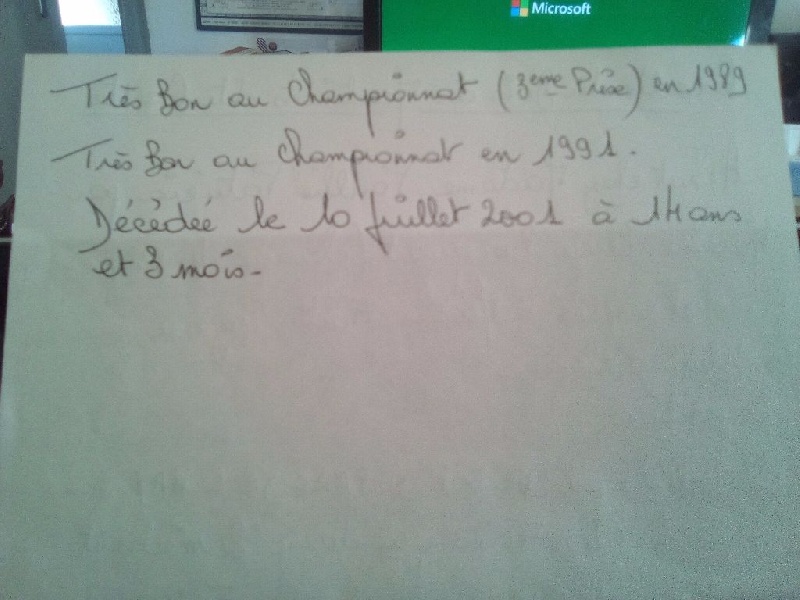 Microsoft
Très Bon au Championnat (3eme Prix) en 1989
Très Bon au Championnat en 1991.
Décédée le 10 Juillet 2001 à 14 ans
et 3 mois.